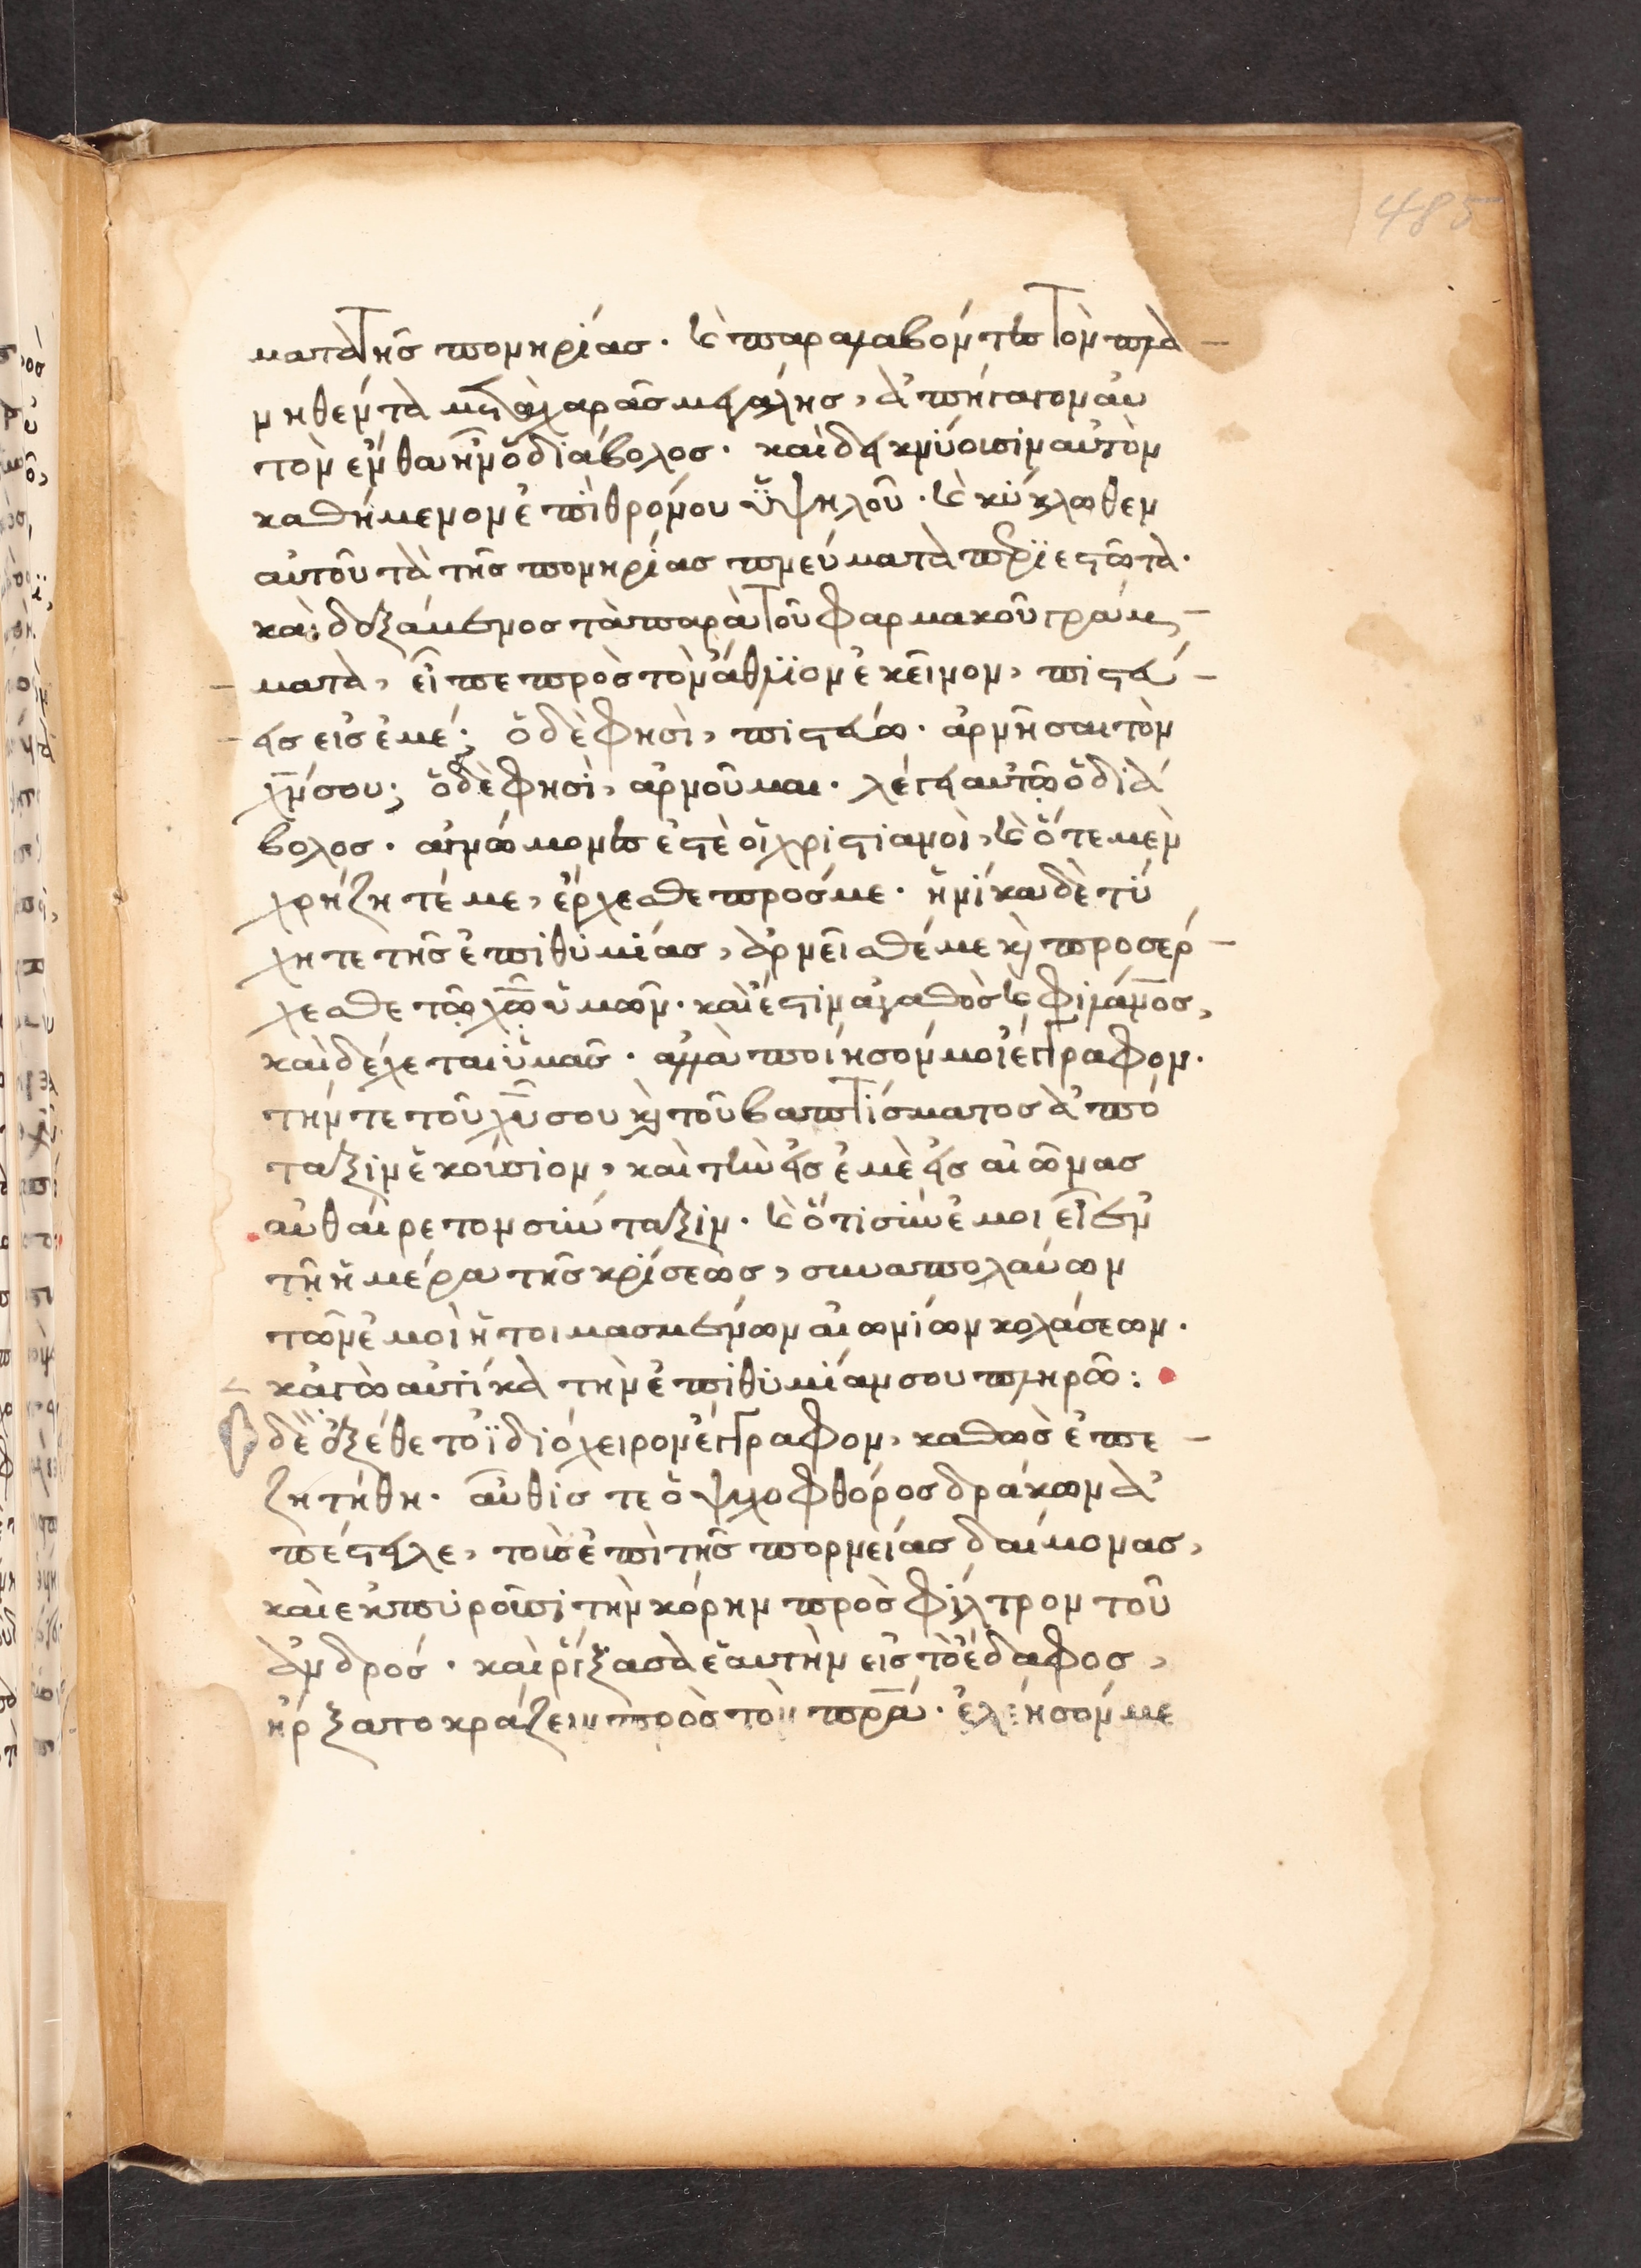 485
ματα της πονηρίας· καὶ παραλαβόντες τὸν πλα
νηθέντα μετὰ χαρᾶς μεγάλης, ἀπήγαγον αὐ
τὸν ἔνθα ἦν ὁ διάβολος· καὶ δεικνύουσιν αὐτὸν
καθήμενον ἐπὶ θρόνου ὑψηλοῦ· καὶ κύκλωθεν
αὐτοῦ τὰ τῆς πονηρίας πνεύματα περιεστῶτα·
καὶ δεξάμενος τὰ παρὰ τοῦ φαρμακοῦ γράμ
ματα, εἶπε πρὸς τὸν ἄθλιον ἐκεῖνον, πιστεύ
εις εἰς ἐμέ; ὁ δὲ φησὶ, πιστεύω· ἀρνῆσαι τὸν
χν̅ σου; ὁ δὲ φησὶ, ἀρνοῦμαι· λέγει αὐτῷ ὁ διά
βολος· ἀγνώμονες ἐστὲ οἱ χριστιανοὶ, καὶ ὅτε μὲν
χρήζητέ με, ἔρχεσθε πρός με· ἡνίκα δὲ τύ
χητε τῆς ἐπιθυμίας, ἀρνεῖσθέ με κ προσέρ
χεσθε τῷ χῷ̅ ὑμῶν· καὶ ἔστιν ἀγαθὸς καὶ φιλάνο̅ς,
καὶ δέχεται ὑμᾶς· ἀλλὰ ποίησόν μοι ἔγγραφον·
τήν τε τοῦ χῦ̅ σου κ τοῦ βαπτίσματος ἀπό
ταξιν ἑκούσιον, καὶ τὴν εἰς ἐμὲ εἰς αἰῶνας
αὐθαίρετον σύνταξιν· καὶ ὅτι σὺν ἐμοι εἶ ἐν
τῇ ἡμέρα τῆς κρίσεως, συναπολαύων
τῶν ἐμοὶ ἡτοιμασμένων αἰωνίων κολάσεων·
κἀγὼ αὐτίκα τὴν ἐπιθυμίαν σου πληρῶ:
ὁ δὲ ἐξέθετο ἰδιόχειρον ἔγγραφον, καθὼς ἐπε
ζητήθη· αὖθις τε ὁ ψυχοφθόρος δράκων ἀ
πέστειλε, τοὺς ἐπὶ τῆς πορνείας δαίμονας,
καὶ ἐκπυροῦσι τὴν κόρην πρὸς φίλτρον τοῦ
ἀνδρός· καὶ ῥίξασα ἑαυτὴν εἰς τὸ ἔδαφος,
ἤρξατο κράζειν πρὸς τὸν πρ̅α· ἐλέησόν με